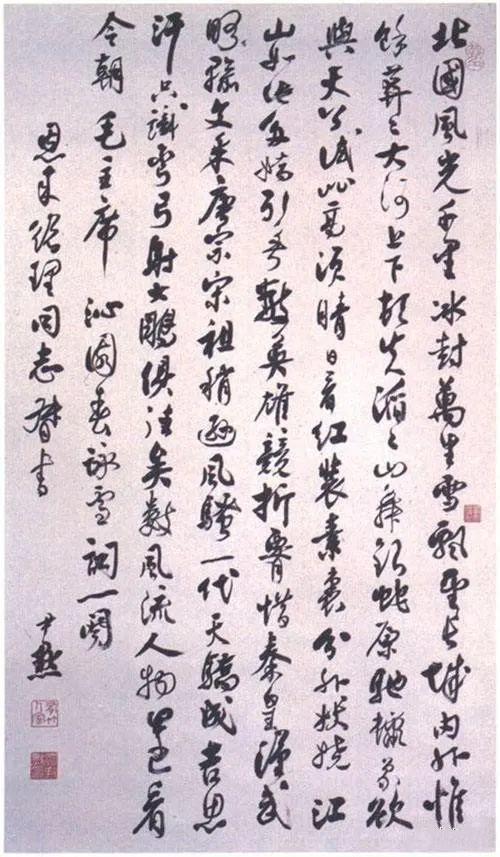 北國風光千里冰封萬里雪飄望長城內外惟
餘莽〻大河上下頓失滔〻山舞銀蛇原馳蠟象欲
與天公試比高須晴日看紅裝素裹分外妖嬈江
山如此多嬌引無數英雄競折腰惜秦皇漢武
略輸文采唐宗宋祖稍遜風騷一代天驕成吉思
汗只識彎弓射大鵰俱往矣數風流人物還看
今朝 毛主席 沁園春詠雪詞一闋
恩來總理同志督書
尹默